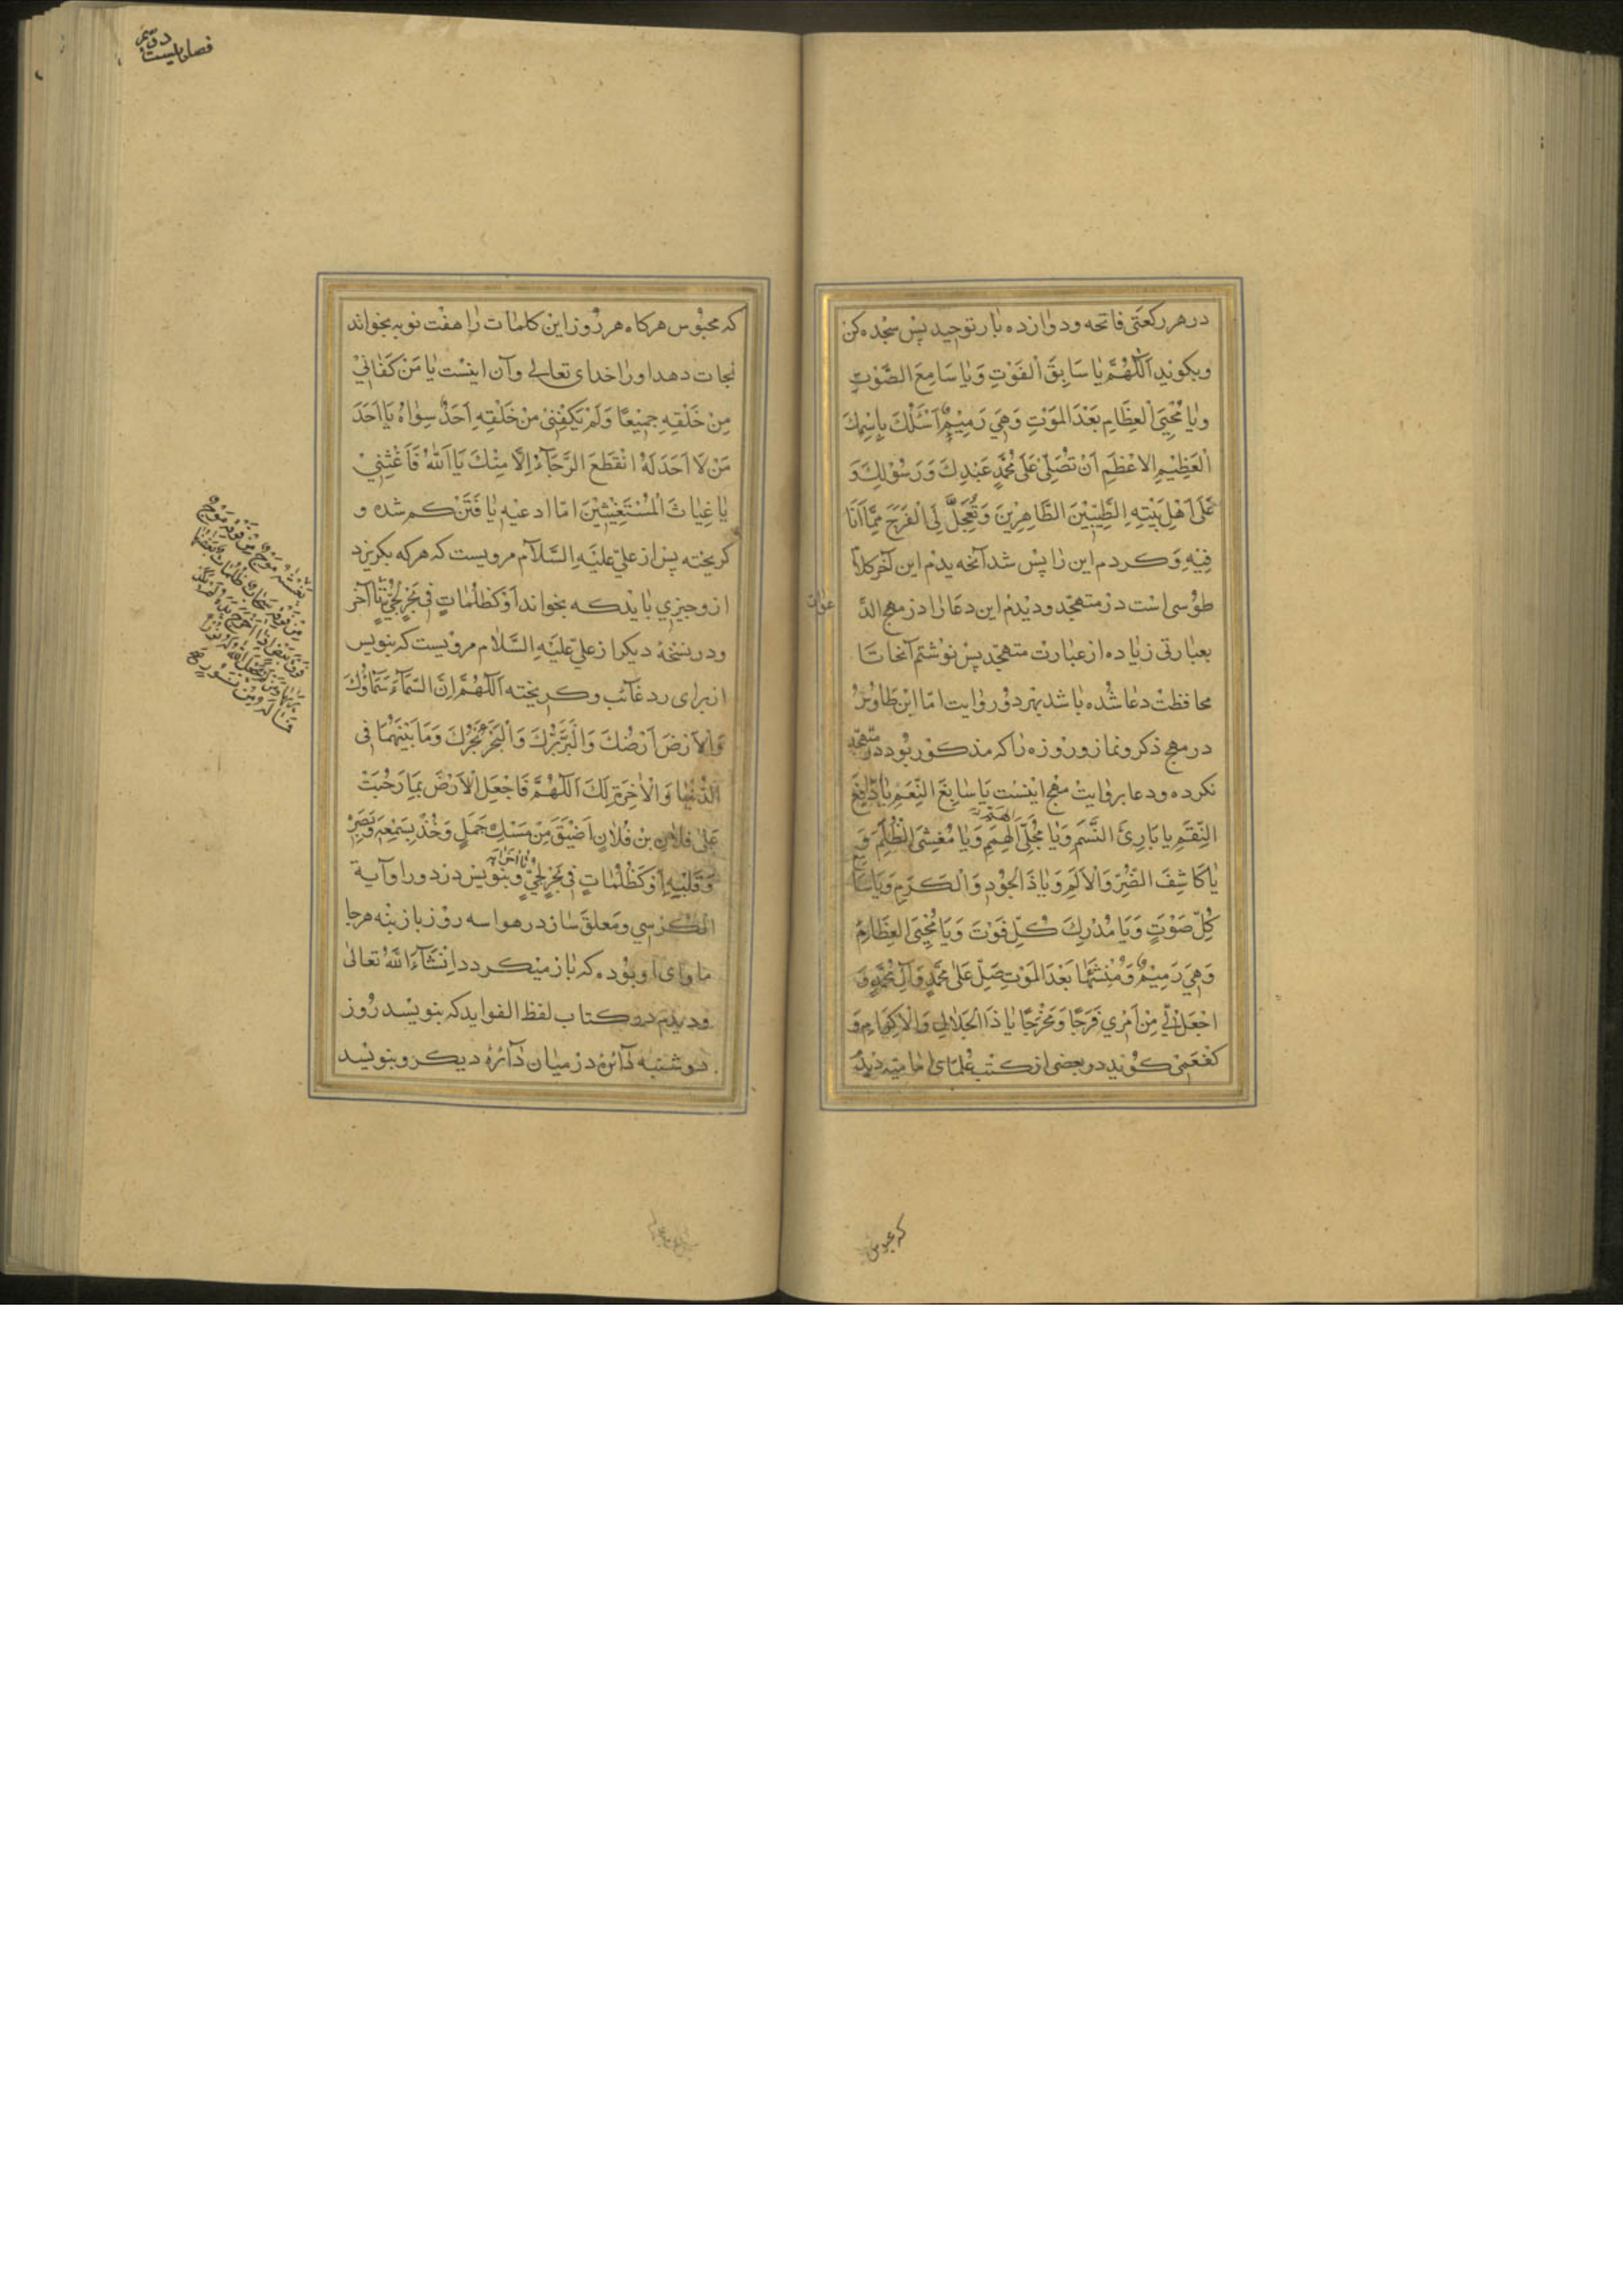 در هر رکعتی فاتحه و دوازده بار توحید پس سجده کن
و بگوئید اَللّٰهُمَّ یَا سَابِقَ الْفَوْتِ وَیَا سَامِعَ الصَّوْتِ
وَیَا مُحْیِیَ الْعِظَامِ بَعْدَ الْمَوْتِ وَهِيَ رَمِیْمٌ اَسْئَلُكَ بِاِسْمِكَ
الْعَظِیْمِ الْاَعْظَمِ اَنْ تُصَلِّیَ عَلٰی مُحَمَّدٍ عَبْدِكَ وَرَسُوْلِكَ وَ
عَلٰی اَهْلِ بَیْتِهِ الطَّیِّبِیْنَ الطَّاهِرِیْنَ وَتُعَجِّلَ لِیَ الْفَرَجَ مِمَّا اَنَا
فِیْهِ وَکردم این را پس شد آنچه دیدم این آخر کلام
طوسی است در متهجد و دیدم این دعا را در مهج الد
عوات
بعبارتی زیاده از عبارت متهجد پس نوشتم آنجا تا
محافظت دعا شده باشد بهر دو روایت امّا ابن طاوس
در مهج ذکر و نماز و روزه را که مذکور بود در متهجد
نکرده و دعا بروایت مهج اینست یَا سَابِغَ النِّعَمِ یَا دَافِعَ
النِّقَمِ یا بَارِئَ النَّسَمِ وَیَا مُجَلِّيَ الْهِمَمِ وَیَا مُغْشِیَ الظُّلَمِ وَ
یَا کَاشِفَ الضُّرِّ وَالْاَلَمِ وَیَا ذَا الْجُوْدِ وَالْکَرَمِ وَیَا سَامِعَ
کُلِّ صَوْتٍ وَیَا مُدْرِكَ کُلِّ فَوْتٍ وَیَا مُحْیِیَ الْعِظَامِ
وَهِيَ رَمِیْمٌ وَمُنْشِئَهَا بَعْدَ الْمَوْتِ صَلِّ عَلٰی مُحَمَّدٍ وَآلِ مُحَمَّدٍ وَ
اجْعَلْ لِّيْ مِنْ اَمْرِي فَرَجًا وَمَخْرَجًا یَا ذَا الْجَلَالِ وَالْاِکْرَامِ وَ
کفعمی گوید در بعضی از کتب علمای امامیّه دیدم
که محبوس
فصل بیست دویم
که محبوس هرگاه هر روز این کلمات را هفت نوبه بخواند
نجات دهد او را خدای تعالی و آن اینست یَا مَنْ کَفَانِيْ
مِنْ خَلْقِهِ جَمِیْعًا وَلَمْ یَکْفِنِيْ مِنْ خَلْقِهِ اَحَدٌ سِوَاهُ یَا اَحَدَ
مَنْ لَا اَحَدَ لَهُ انْقَطَعَ الرَّجَآءُ اِلَّا مِنْكَ یَا اَللّٰهُ فَاَغِثْنِيْ
یَا غِیَاثَ الْمُسْتَغِیْثِیْنَ امّا ادعیه یافتن کم شده و
کریخته پس از علیّ علیه السّلام مرویست که هرکه بکریزد
ازو چیزی باید که بخواند اَوْ کَظُلُمَاتٍ فِيْ بَحْرٍ لُجِّيٍّ تا آخر
و در نسخهٔ دیکر از علیّ علیه السّلام مرویست که بنویس
از برای رد غائب و کریخته اَللّٰهُمَّ اِنَّ السَّمَآءَ سَمَاؤُكَ
وَالْاَرْضَ اَرْضُكَ وَالْبَرَّ بَرُّكَ وَالْبَحْرَ بَحْرُكَ وَمَا بَیْنَهُمَا فِی
الدُّنْیَا وَالْاٰخِرَةِ لَكَ اَللّٰهُمَّ فَاجْعَلِ الْاَرْضَ بِمَا رَحُبَتْ
عَلٰی فلان بن فُلَانٍ اَضْیَقَ مِنْ مَسْكِ جَمَلٍ وَخُذْ بِسَمْعِهِ وَبَصَرِهِ
وَقَلْبِهِ اَوْ کَظُلُمَاتٍ فِيْ بَحْرٍ لُجِّيٍّ تا آخر آیه و بنویس در دور او آیة
الکرسي و معلق ساز در هوا سه روز باز بنه هر جا
ماوای او بوده که باز میکردد اِنْشَآءَ اللّٰهُ تعالیٰ
و دیدم در کتاب لفظ الفواید که بنویسد روز
دوشنبه دآئرهٔ در میان دآئرهٔ دیکر و بنویسد
یَغْشٰهُ مَوْجٌ مِنْ فَوْقِهِ مَوْجٌ
مِنْ فَوْقِهِ سَحَابٌ ظُلُمَاتٌ بَعْضُهَا
فَوْقَ بَعْضٍ اِذَا اَخْرَجَ یَدَهُ لَمْ یَکَدْ
یَرٰیهَا وَمَنْ لَمْ یَجْعَلِ اللّٰهُ لَهُ نُوْرًا
فَمَا لَهُ مِنْ نُوْرٍ